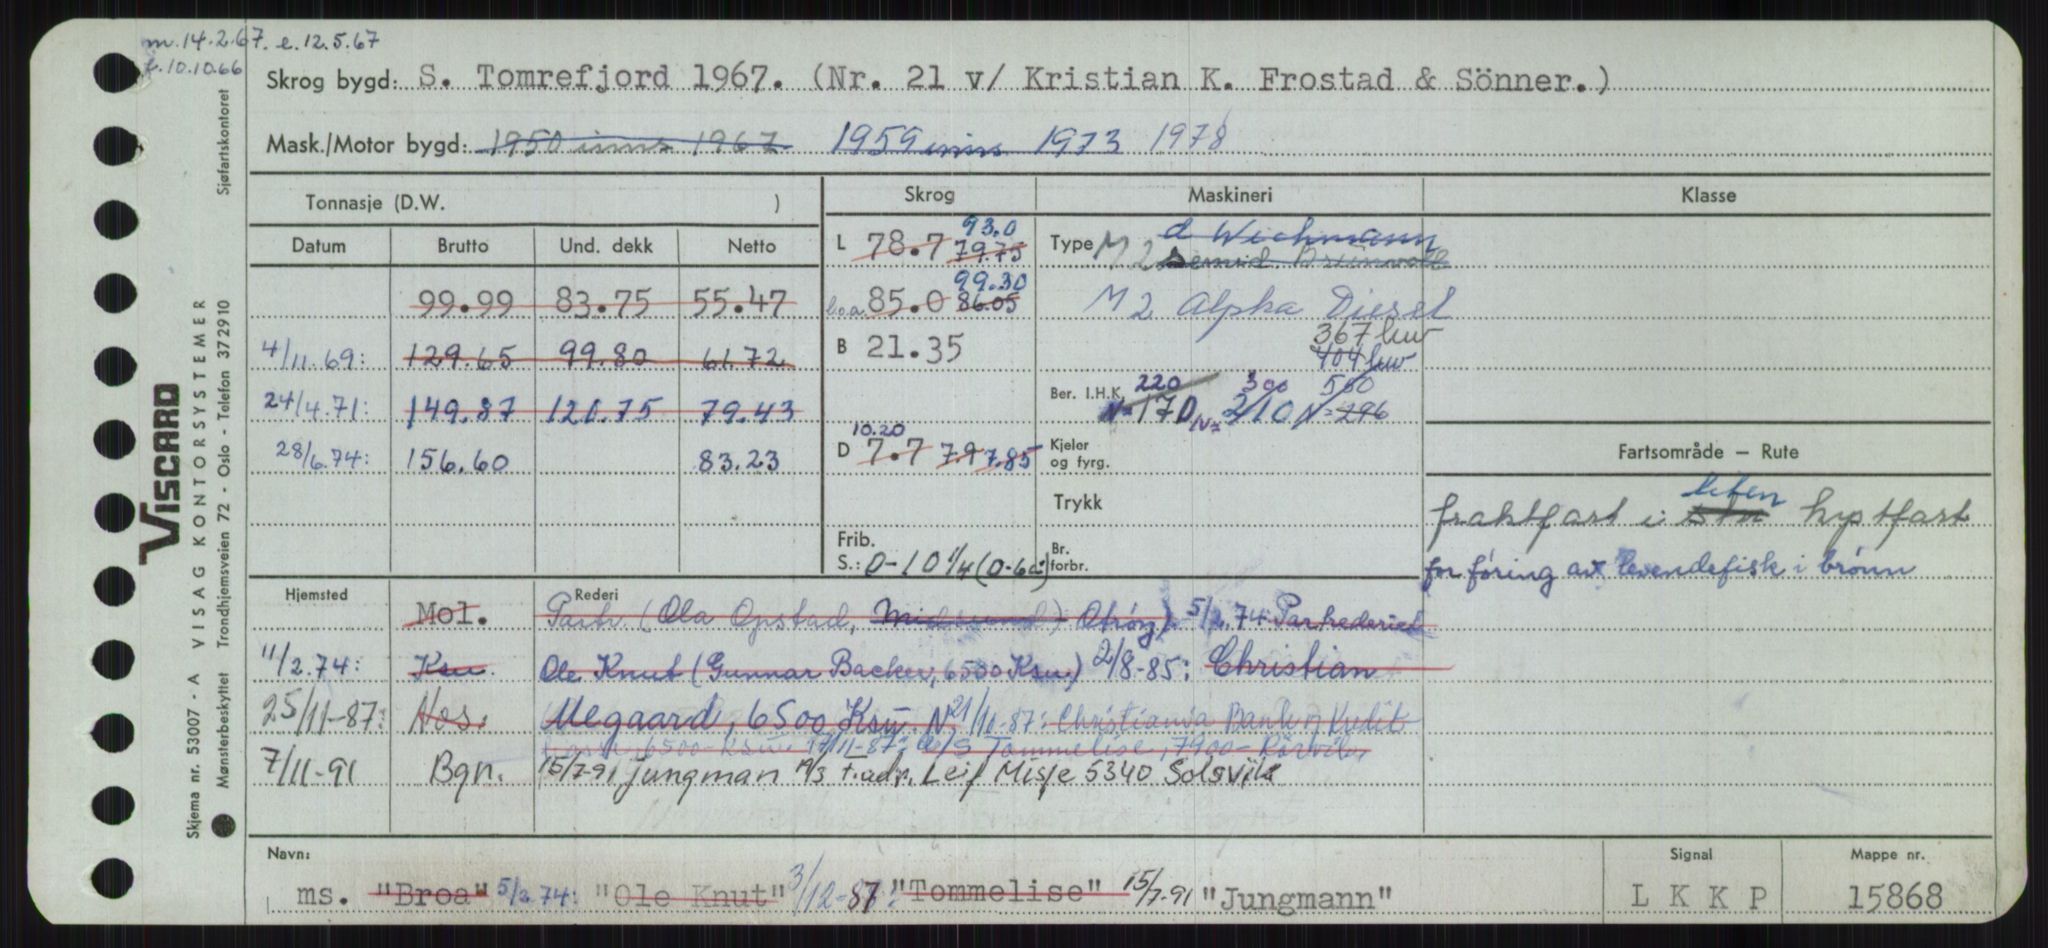 m. 14.2.67. e. 12.5.67
f. 10.10.66
Skrog bygd: S. Tomrefjord 1967. (Nr. 21 v/ Kristian K. Frostad & Sönner.)
Mask./Motor bygd: 1950 inns 1967 1959 inns 1973 1978
Tonnasje (D.W. ) Skrog Maskineri Klasse
Datum Brutto Und. dekk Netto
L 78.7 79.75 93.0
Type M 2 Semid. Brunvoll
d Wichmann
99.99 83.75 55.47
l.o.a. 85.0 86.05 99.30
M 2 Alpha Diesel
367 kw
404 kw
4/11.69: 129.65 99.80 61.72
B 21.35
24/4.71: 149.87 120.75 79.43
Ber. I.H.K. 220 300 550
N=170 N=210 N=296
28/6.74: 156.60 83.23
D 7.7 7.9 7.85 10.20
Kjeler og fyrg.
Trykk
Frib.
S.: 0-10 1/4 (0-6a)
Br. forbr.
Fartsområde — Rute
fraktfart i stn liten kystfart
for føring av levendefisk i brønn
Hjemsted Rederi
Mol. Partr (Ola Opstad, Midsund) Otrøy). 5/2.74: Partrederiet
11/2.74: Ksu. Ole Knut (Gunnar Backer, 6500 Ksu) 2/8-85: Christian
25/11-87: Nos: Ulegaard, 6500 Ksu. N. 21/10-87: Christiania Bank og Kredit
6500-Ksu. 17/11-87: A/S Tommelise, 7900-Rörvik
7/11-91 Bgn. 15/7-91 jungman A/S t.adr. Leif Misje 5340 Solsvik
Navn: Signal Mappe nr.
ms. "Broa" 5/2.74: "Ole Knut" 3/12-87: "Tommelise" 15/7-91 "Jungmann" LKKP 15868
Sjøfartskontoret
Skjema nr. 53007 - A VISAG KONTORSYSTEMER
Mønsterbeskyttet Trondhjemsveien 72 - Oslo - Telefon 372910
VISCARD